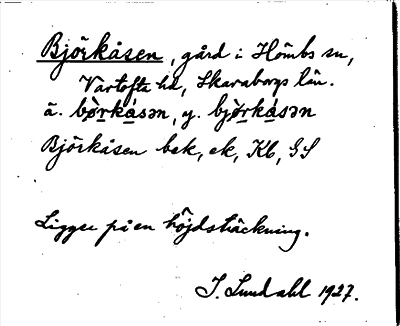 Björkåsen, gård i Hömbs sn,
Vartofta hd, Skaraborgs län.
ä. bö̀rkåsən, y. bjö̀rkåsən
Björkåsen bek, ek, Kb, GS
Ligger på en höjdsträckning.
I. Lundahl 1927.